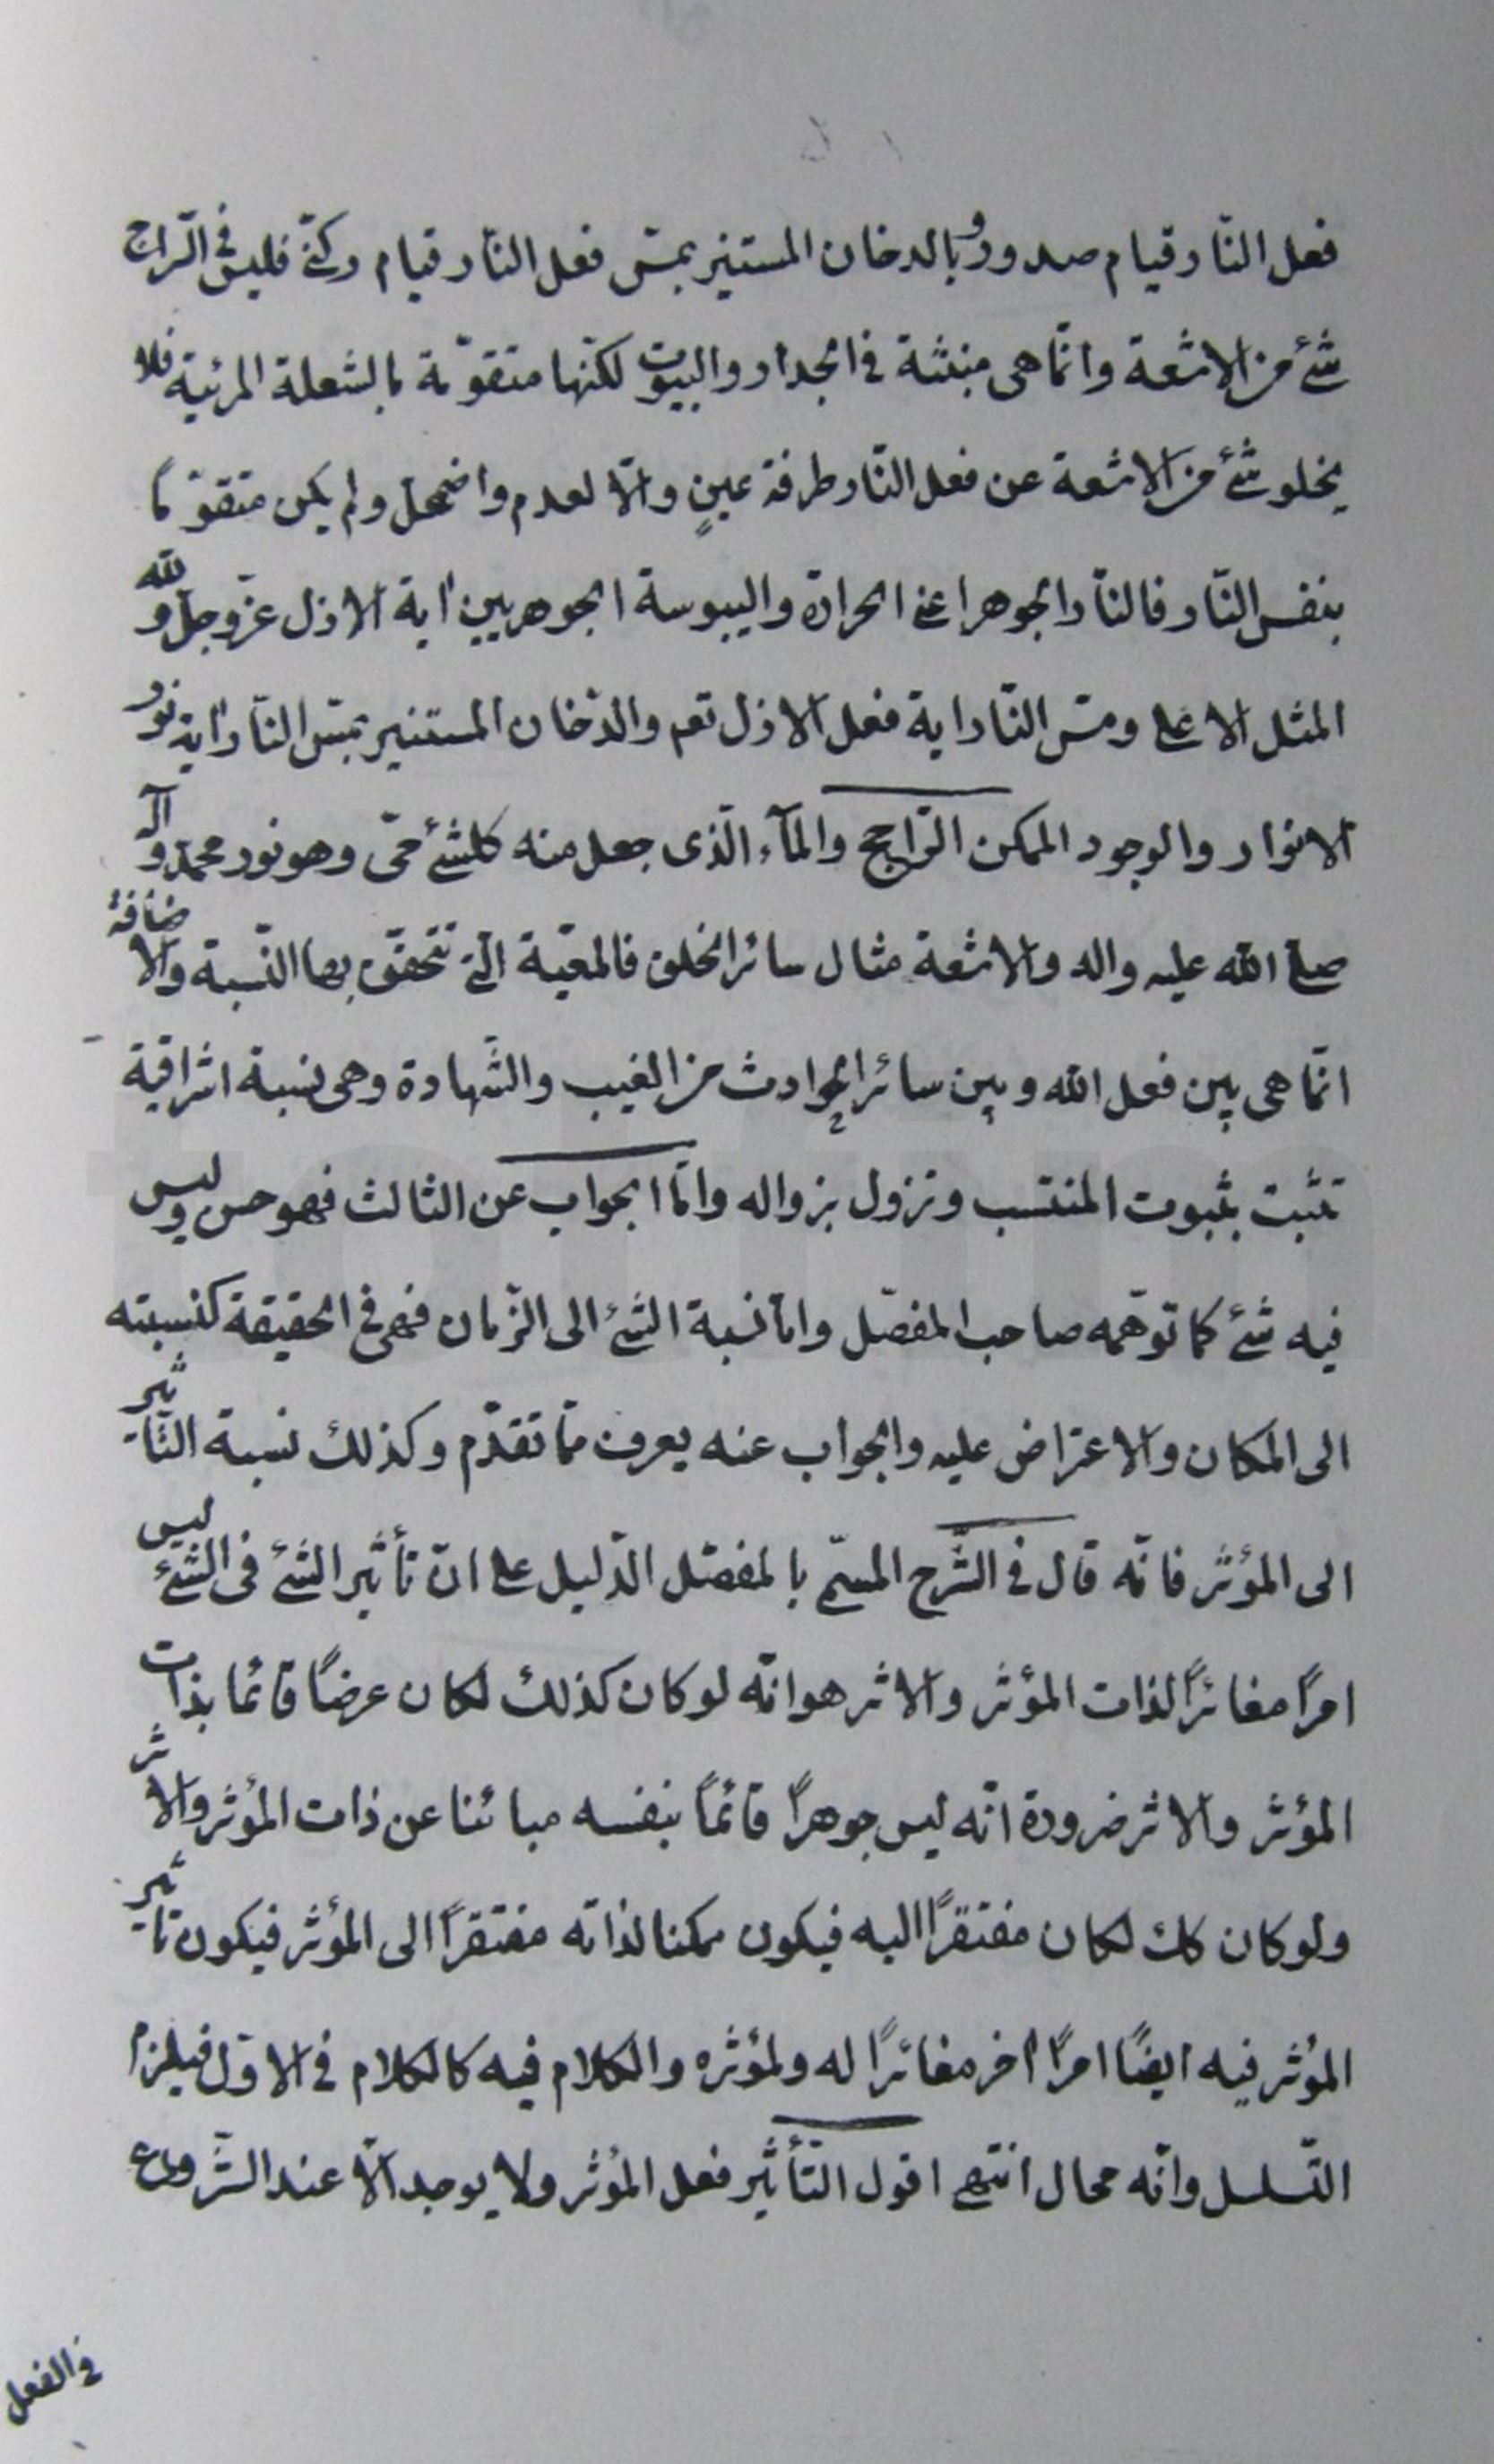 فعل النّار قيام صدور وبالدخان المستنير بمسّ فعل النّار قيام ركنّى فليس فى السّراج
شئ من الاشعة وانّما هى منبثة فى الجدار والبيوت لكنّها متقوّمة بالشعلة المرئية فلا
يخلو شئ من الاشعة عن فعل النّار طرفة عينٍ والّا لعدم واضمحل ولم يكن متقوّما
بنفس النّار فالنّار الجوهر اعنى الحرارة واليبوسة الجوهريين اية الازل عزّوجلّ ولله
المثل الاعلى ومسّ النّار اية فعل الازل تعم والدّخان المستنير بمسّ النّار اية نور
الانوار والوجود الممكن الرّاجح والمآء الّذى جعل منه كلشئ حىّ وهو نور محمّد وآله
صلى الله عليه واله والاشعة مثال سائر الخلق فالمعيّة الّتى تتحقّق بها النّسبة والاضافة
انّما هى بين فعل الله وبين سائر الحوادث من الغيب والشّهادة وهى نسبة اشراقية
تثبت بثبوت المنتسب وتزول بزواله وامّا الجواب عن الثالث فهو حس وليس
فيه شئ كما توهّمه صاحب المفصّل وامّا نسبة الشئ الى الزّمان فهى فى الحقيقة كنسبته
الى المكان والاعتراض عليه والجواب عنه يعرف ممّا تقدّم وكذلك نسبة التّاثير
الى المؤثر فانّه قال فى الشّرح المسمّى بالمفصّل الدّليل على انّ تأثير الشئ فى الشئ ليس
امرًا مغائرًا لذات المؤثر والاثر هو انّه لو كان كذلك لكان عرضًا قائما بذات
المؤثر والاثر ضرورة انّه ليس جوهرًا قائمًا بنفسه مبائنا عن ذات المؤثر والاثر
ولو كان كك لكان مفتقرًا اليه فيكون ممكنا لذاته مفتقرًا الى المؤثر فيكون تاثير
المؤثر فيه ايضًا امرًا اخر مغائرًا له ولمؤثره والكلام فيه كالكلام فى الاوّل فيلزم
التّسلسل وانّه محال انتهى اقول التّأثير فعل المؤثر ولا يوجد الّا عند الشّروع
فى الفعل